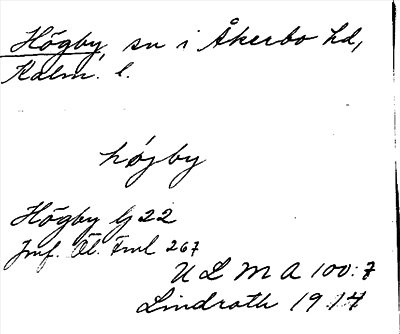 Högby, sn i Åkerbo hd,
Kalm. l.
højby
Högby G 22
Jmf. Öl. Fml 267
ULMA 100:7
Lindroth 1914